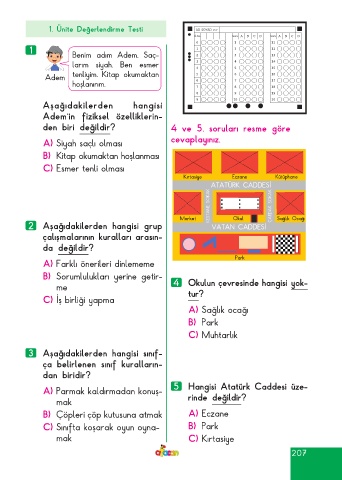 1. Ünite Değerlendirme Testi
1
Benim adım Adem. Saç-
larım siyah. Ben esmer
tenliyim. Kitap okumaktan
hoşlanırım.
Adem
Aşağıdakilerden hangisi
Adem'in fiziksel özelliklerin-
den biri değildir?
A) Siyah saçlı olması
B) Kitap okumaktan hoşlanması
C) Esmer tenli olması
2 Aşağıdakilerden hangisi grup
çalışmalarının kuralları arasın-
da değildir?
A) Farklı önerileri dinlememe
B) Sorumlulukları yerine getir-
me
C) İş birliği yapma
3 Aşağıdakilerden hangisi sınıf-
ça belirlenen sınıf kuralların-
dan biridir?
A) Parmak kaldırmadan konuş-
mak
B) Çöpleri çöp kutusuna atmak
C) Sınıfta koşarak oyun oyna-
mak
4 ve 5. soruları resme göre
cevaplayınız.
Kırtasiye Eczane Kütüphane
ATATÜRK CADDESİ
Market Okul Sağlık Ocağı
VATAN CADDESİ
Park
4 Okulun çevresinde hangisi yok-
tur?
A) Sağlık ocağı
B) Park
C) Muhtarlık
5 Hangisi Atatürk Caddesi üze-
rinde değildir?
A) Eczane
B) Park
C) Kırtasiye
207